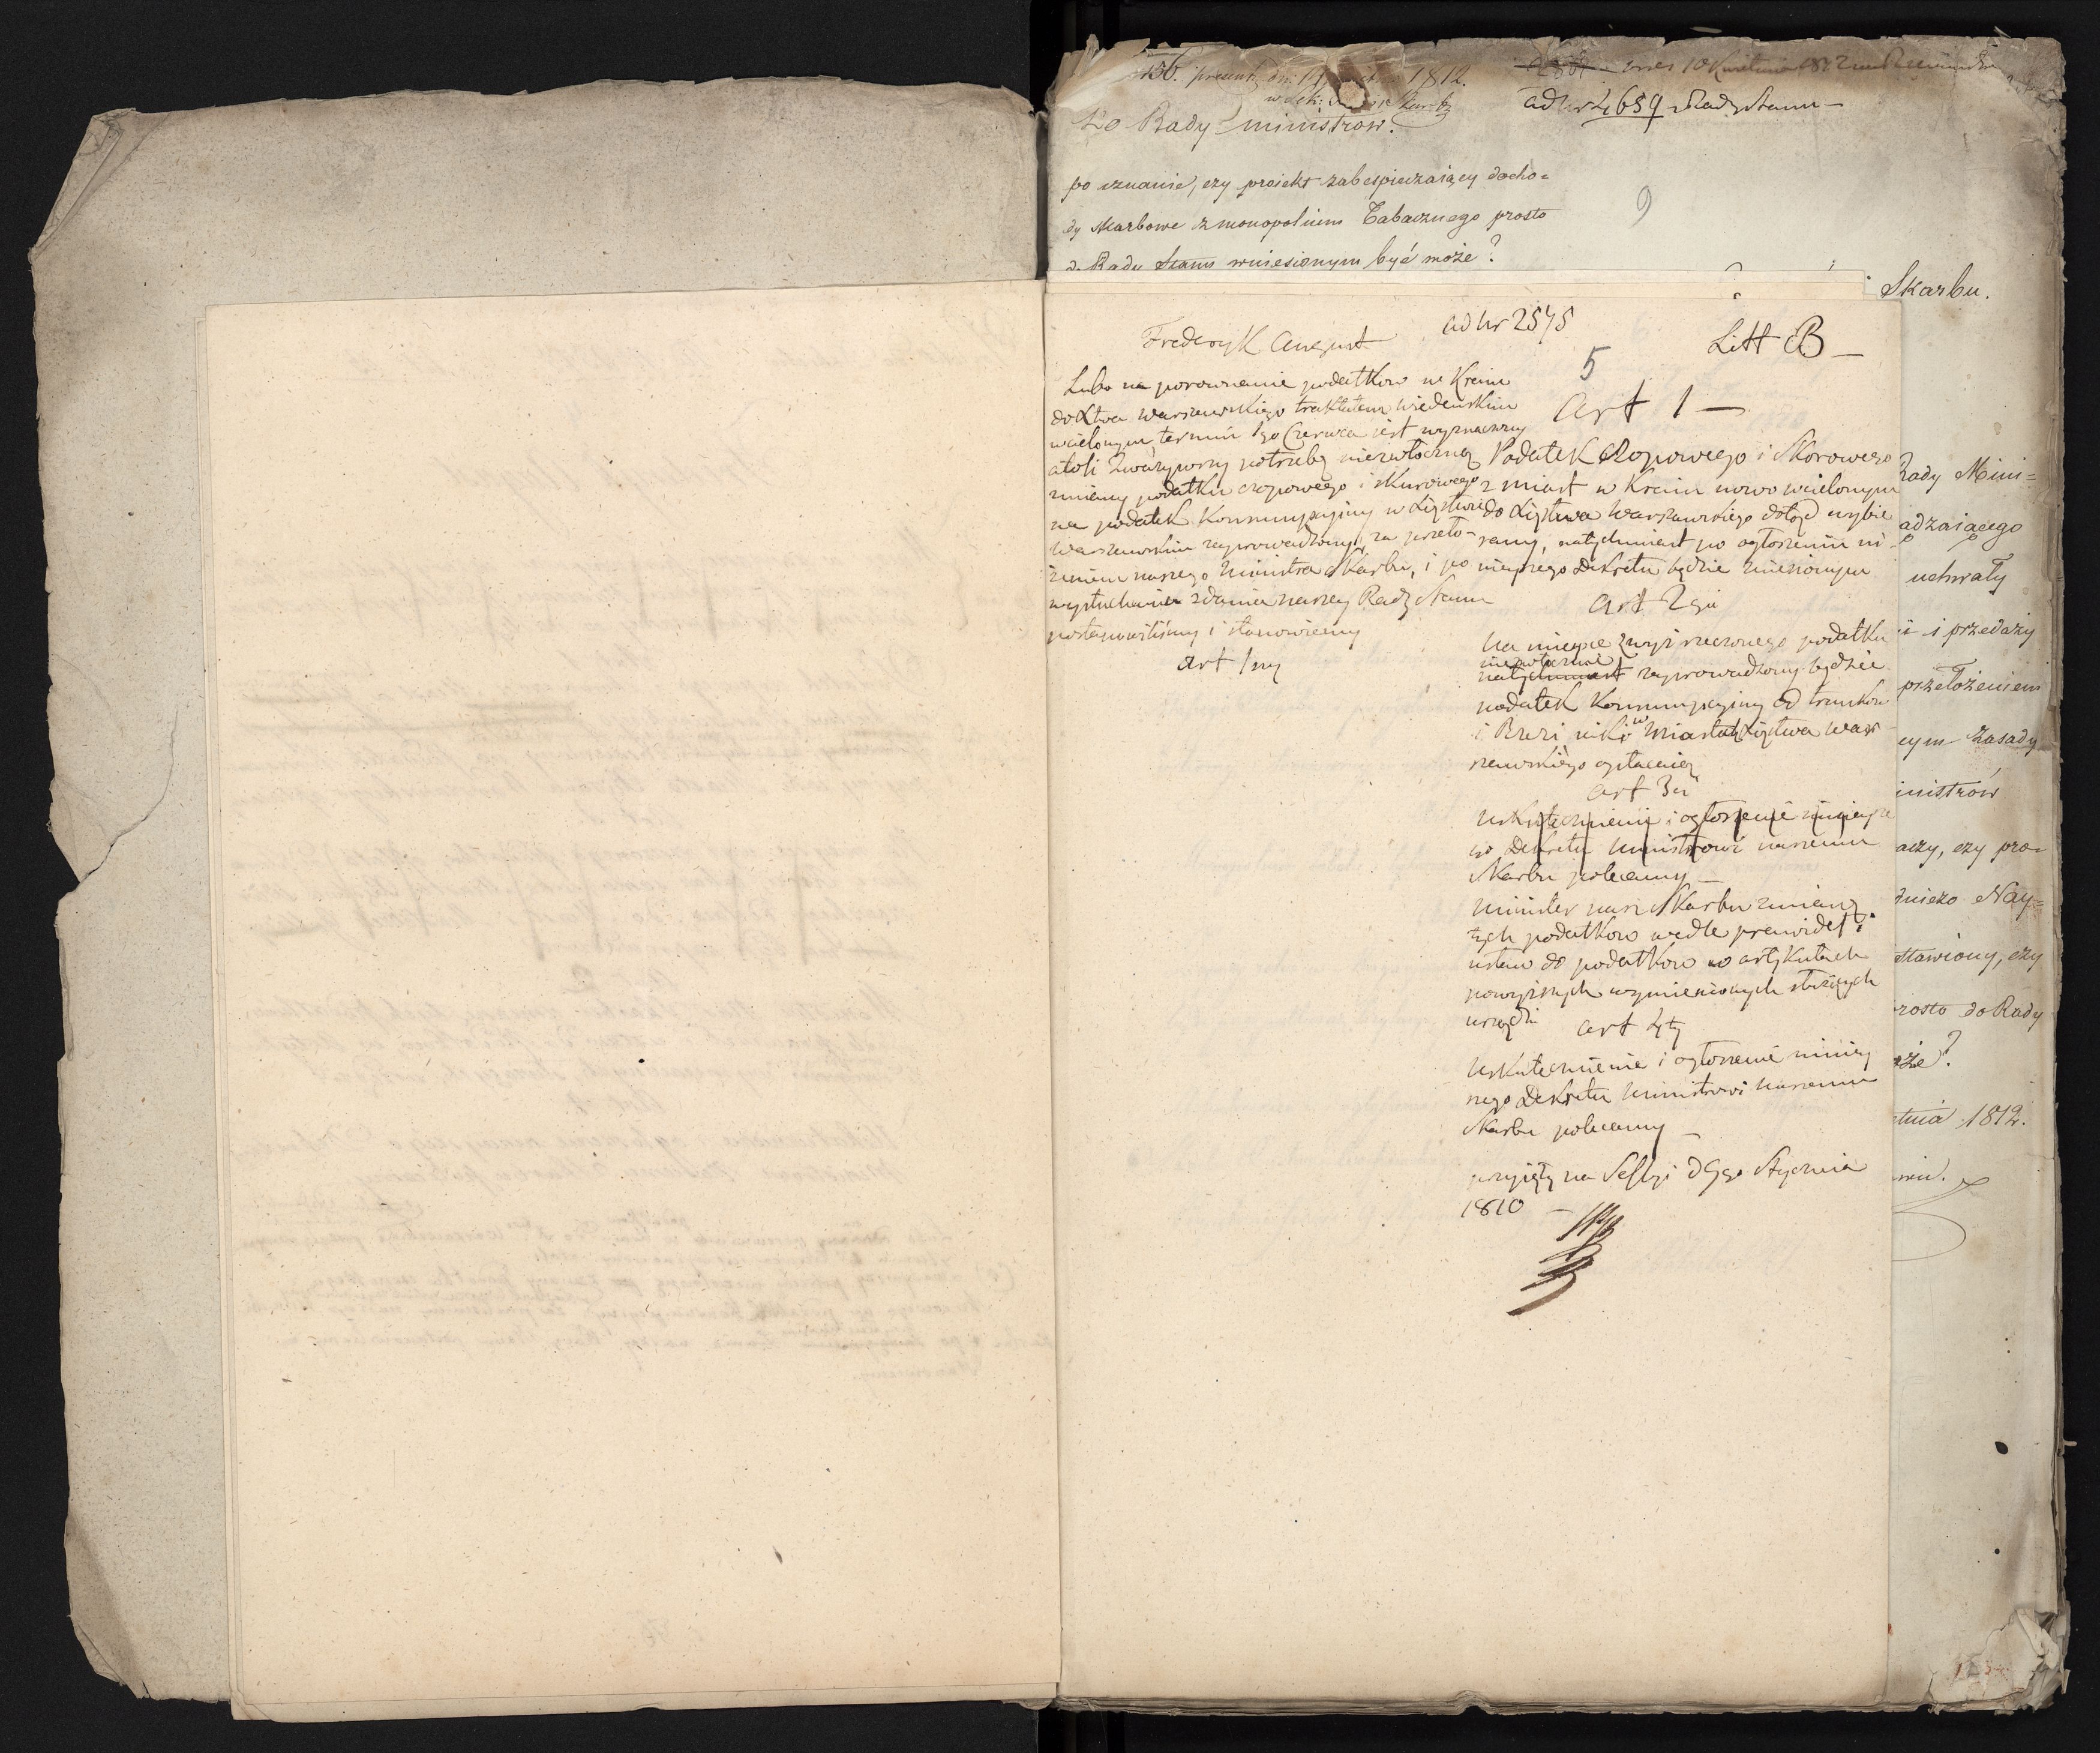 156. 1812.
ad Nr 4659 Rady Stanu —
Do Rady Ministrow.
po uznanie, czy proiekt zabespieczaiący docho=
dy skarbowe z monopolium Tabacznego prosto
do Rady Stanu wniesionym być może?
9
Skarbu.
Fryderyk August
ad Nr 2575
Litt B —
5
Lubo na porownanie podatkow w Kraiu
do Xtwa Warszawskiego traktatem wiedenskim
wcielonym termin 1go Czerwca jest wyznaczony
atoli zważywszy potrzebę niezwłoczney
zmiany podatku czopowego i skurowego
na podatek konsumpcyiny w Xięstwie
Warszawskim zaprowadzony, za przeło-
żeniem naszego Ministra Skarbu, i po
wysłuchaniu zdania naszey Rady Stanu
postanowiliśmy i stanowiemy
art 1szy
Art 1 —
Podatek Czopowego i Skorowego
z miast w Kraiu nowo wcielonym
do Xięstwa Warszawskiego dotąd wybie
rany, natychmiast po ogłoszeniu ni-
nieyszego Dekretu będzie zniesionym
art 2gi
Na mieysce zwyż rzeczonego podatku
niezwłocznie
natychmiast zaprowadzony będzie
podatek konsumpcyiny od trunkow
i Rzezi jaki w miastach Xięstwa War
szawskiego opłacaią
art 3ci
Uskutecznienie i ogłoszenie ninieysze
go Dekretu Ministrowi naszemu
Skarbu polecamy —
Minister nasz Skarbu zmianę
tych podatkow wedle prawideł i
ustaw do podatkow w artykułach
powyższych wymienionych służących
urządzi
art 4ty
Uskutecznienie i ogłoszenie niniey
szego Dekretu Ministrowi naszemu
Skarbu polecamy —
przyięty na Sessyi d 9go Stycznia
1810 —
Rady Mini=
adzaiącego
uchwały
i przedaży
przełożeniem
zasady
inistrów
aczy, czy pro=
Nay=
stawiony, czy
prosto do Rady
oże?
etnia 1812.